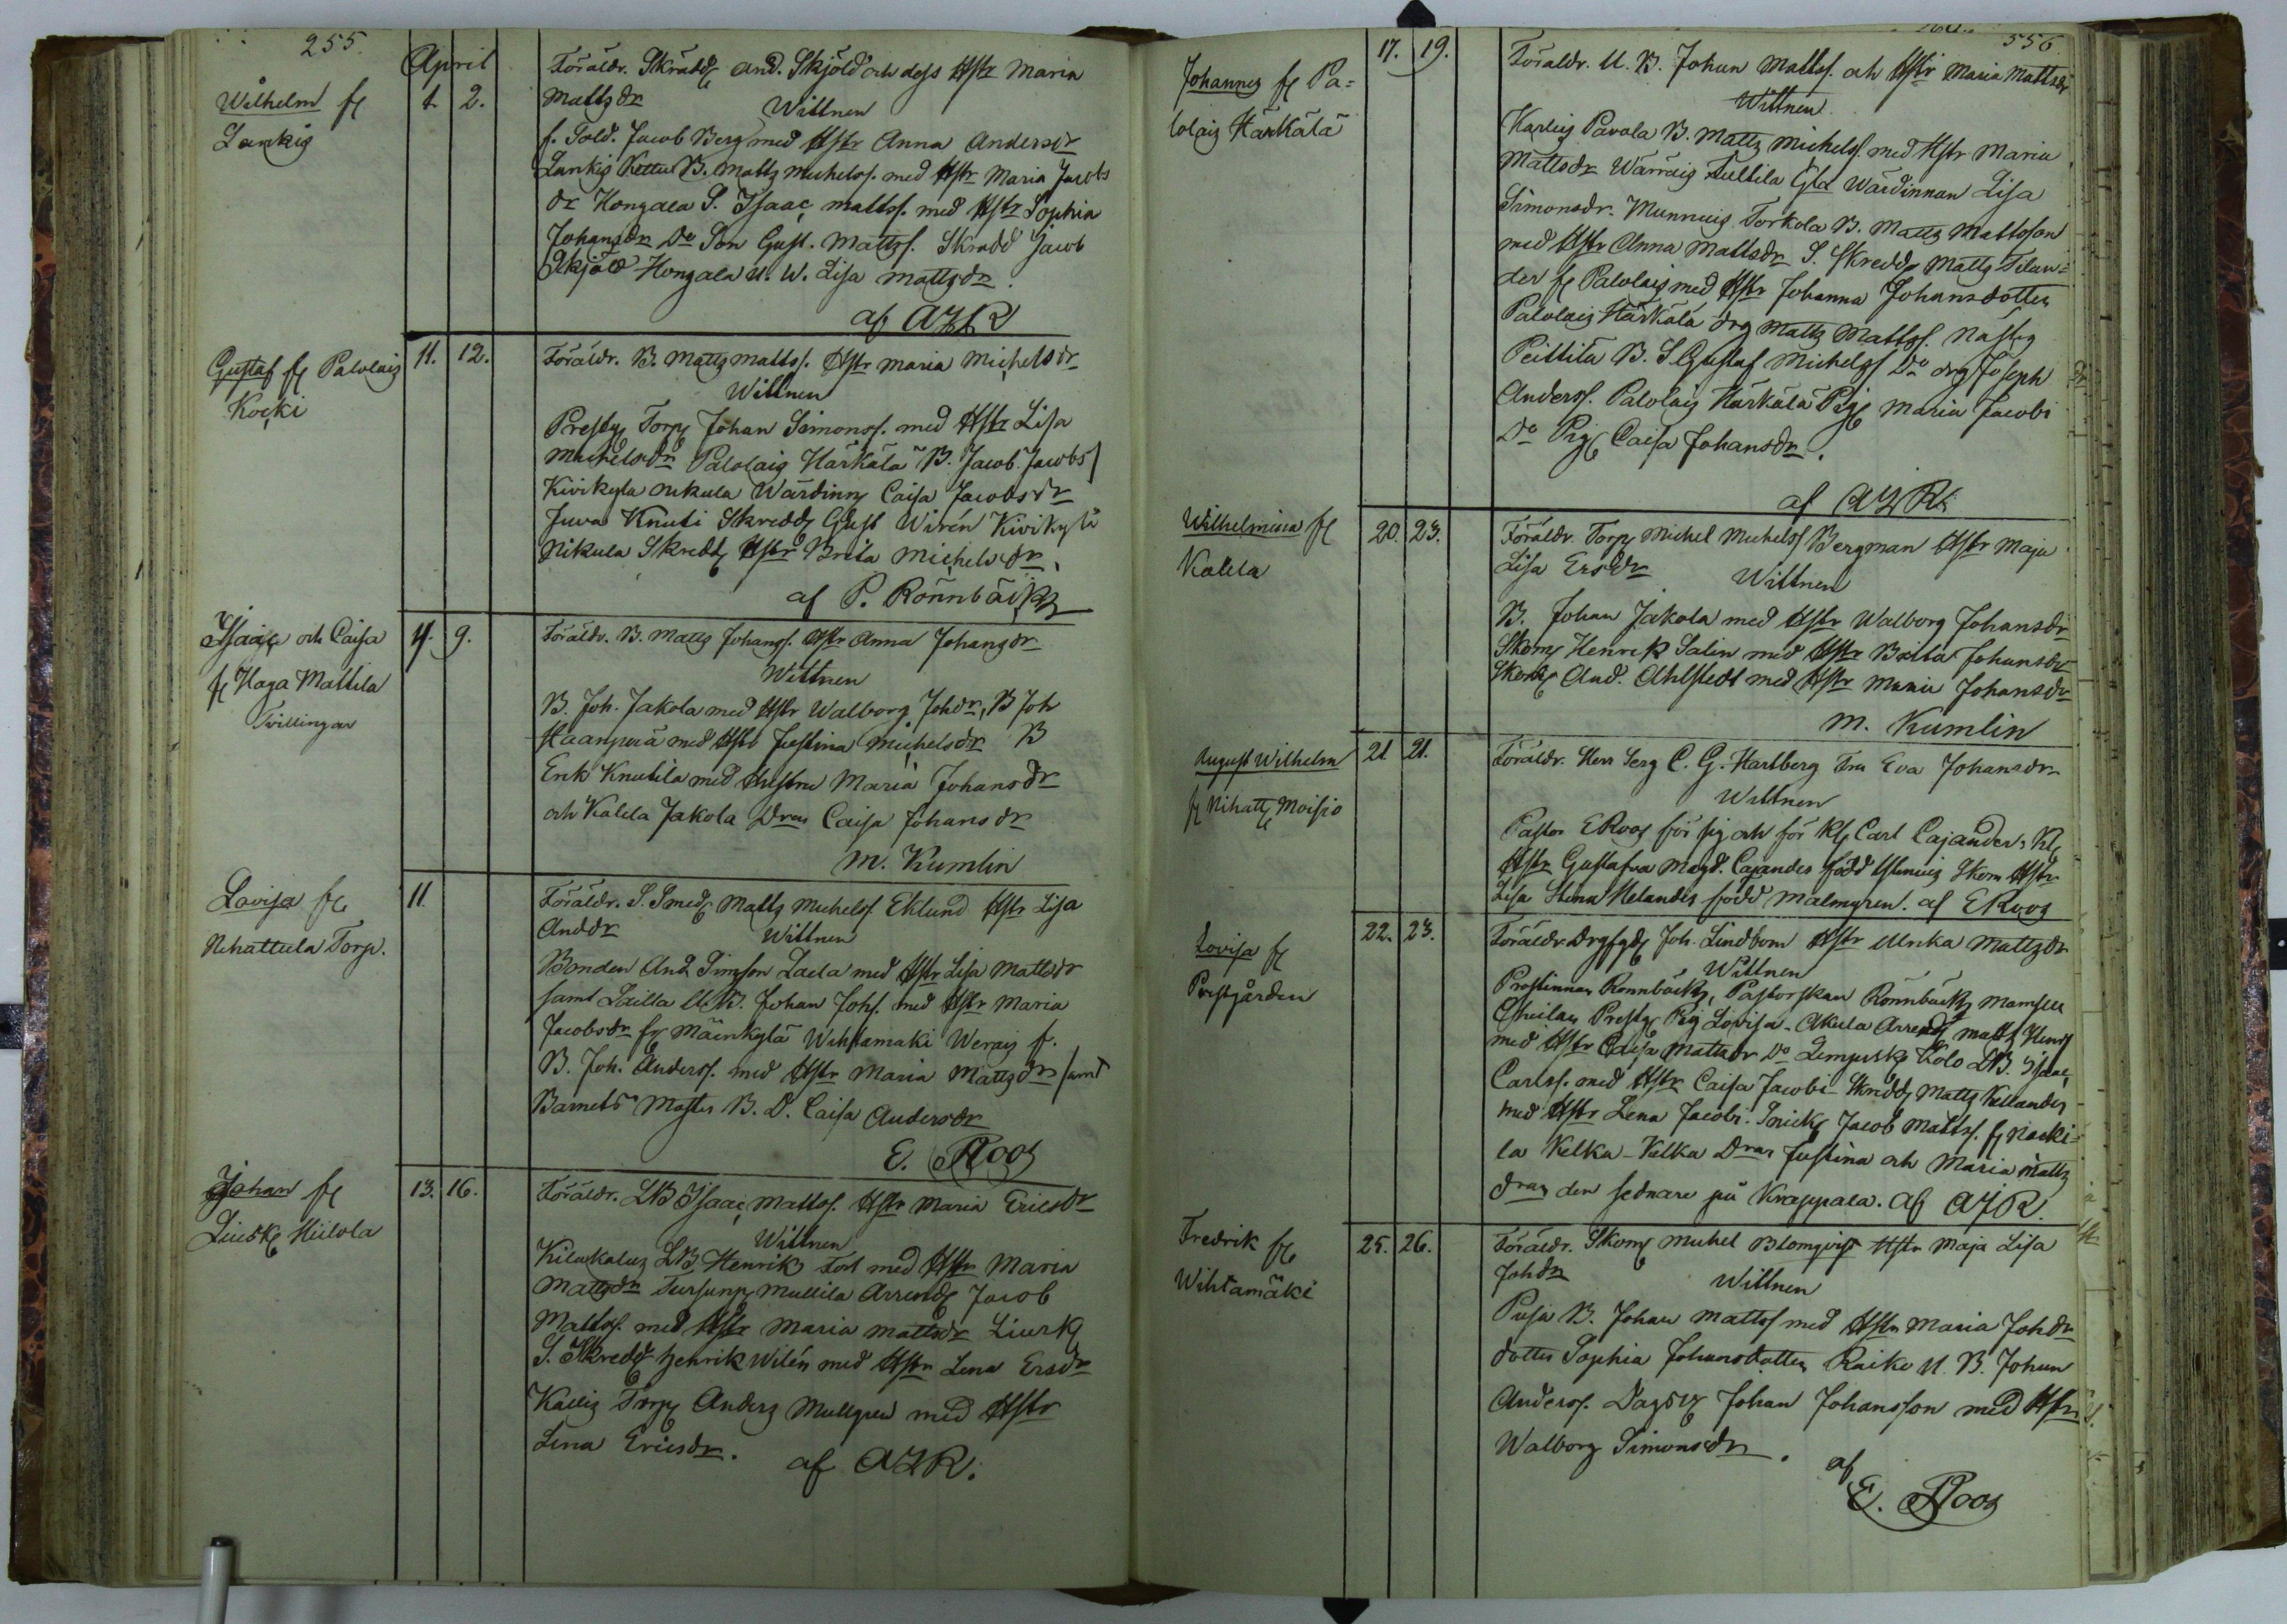 255.
April
Wilhelm fr
Lankis
1. 2.
Föräldr. Skrädd And. Skjöld och dess Hstr Maria
Mattsdr
Wittnen
f. Sold. Jacob Berg med Hstr Anna Andersdr
Lankis Kettu B. Matts Michelss. med Hstr Maria Jacobs
dr Hongala S. Isaac Mattss. med Hstr Sophia
Johansdr Do Son Gust. Mattss. Skrädd Jacob
Skjöld Hongala U. W. Lisa Mattsdr.
af AJR
Gustaf fr Palolais
Kocki
11. 12.
Föräldr. B. Matts Mattss. Hstr Maria Michelsdr
Wittnen
Prestg Torp Johan Simonss. med Hstr Lisa
Michelsdr Palolais Härkälä B. Jacob Jacobs
Kivikylä Nikula Wärdinn Caisa Jacobsdr
Juva Knuti Skredd Gust Wirén Kivikylä
Nikula Skredd Hstr Brita Michelsdr.
af P. Rönnbäck
Isaac och Caisa
fr Haga Mattila
Tvillingar
4. 9.
Föräldr. B. Matts Johanss. Hstr Anna Johansdr
Wittnen
B. Joh. Jakola med Hstr Walborg Johdr, B Joh
Haanperä med Hstr Justina Michelsdr B
Erik Knutila med Hustru Maria Johansdr
och Kalela Jakola Dran Caisa Johansdr
M. Kumlin
Lovisa fr
Nihattula Torp.
11.
Föräldr. S. Smed Matts Michelss. Eklund Hstr Lisa
Anddr
Wittnen
Bonden And Simson Laela med Hstr Lisa Mattsdr
samt Lailla U. B. Johan Johs. med Hstr Maria
Jacobsdr fr Mäenkylä Wihtamäki Werais f.
B. Joh. Anderss. med Hstr Maria Mattsdr samt
Barnets Moster B. D. Caisa Andersdr
E. Roos
Johan fr
Liusk Hiilola
13. 16.
Föräldr. LB Isaac Mattss. Hstr Maria Ericsdr
Wittnen
LB Henrik med Hstr Maria
Mattsdr Mullila Arrend Jacob
Mattss. med Hstr Maria Mattsdr Liusk
S. Skredd Henrik Wilén med Hstr Lena Ersdr
Torp Anders Mullgren med Hstr
Lena Ericsdr.
af AJR.
556.
Johannes fr Pa=
lolais Härkälä
17. 19.
Föräldr. U. B. Johan Mattss. och Hstr Maria Mattsdr
Wittnen
Pavola B. Matts Michelss. med Hstr Maria
Mattsdr Wärräis Tultila Gla Wärdinnan Lisa
Simonsdr. Munnuis Torkola B. Matts Mattsson
med Hstr Anna Mattsdr S. Skredd Matts Tilan=
der fr Palolais med Hstr Johanna Johansdotter
Palolais Härkälä drg Matts Mattss. Näsis
Peittilä B. S Gustaf Michelss Do drg Joseph
Anderss. Palolais Härkälä Pig Maria Jacobi
Do Pig Caisa Johansdr.
af AJR.
Wilhelmina fr
Kalela
20. 23.
Föräldr. Torp Michel Michelss Bergman Hstr Maja
Lisa Ersdr
Wittnen
B. Johan Jakola med Hstr Walborg Johansdr
Skom Henrik Salin med Hstr Brita Johansdr
And. Ahlstedt med Hstr Maria Johansdr
M. Kumlin
August Wilhelm
fr Nihatt Moisio
21. 21.
Föräldr. Herr Serg C. G. Hartberg Fru Eva Johansdr
Wittnen
Pastor E Roos för sig och för Carl Cajander,
Hstr Gustafva Magd. Cajander född Skom Hstr
Lisa Stina Helander född Malmgren. af E Roos
Lovisa fr
Prestgården
22. 23.
Föräldr. Joh. Lindbom Hstr Ulrika Mattsdr
Wittnen
Prostinnan Rönnbäck, Pastorskan Rönnbäck Mamsell
Prestg Pig Lovisa - Akula Arrend Matts Henr
med Hstr Caisa Mattsdr Do Kolo LB. Isaac
Carlss. med Hstr Caisa Jacobi Skredd Matts Kellander
med Hstr Lena Jacobi. Snick Jacob Mattss. fr Nacki=
la Kilkä - Kilkä Dran Justina och Maria Matts
dran den sednare på Knappala. af AJR.
Fredrik fr
Wihtamäki
25. 26.
Föräldr. Skom Michel Blomqvist Hstr Maja Lisa
Johdr
Wittnen
B. Johan Mattss med Hstr Maria Johdr
dotter Sophia Johansdotter Raiko U. B. Johan
Anderss. Johan Johansson med Hstr
Walborg Simonsdr.
af
E. Roos